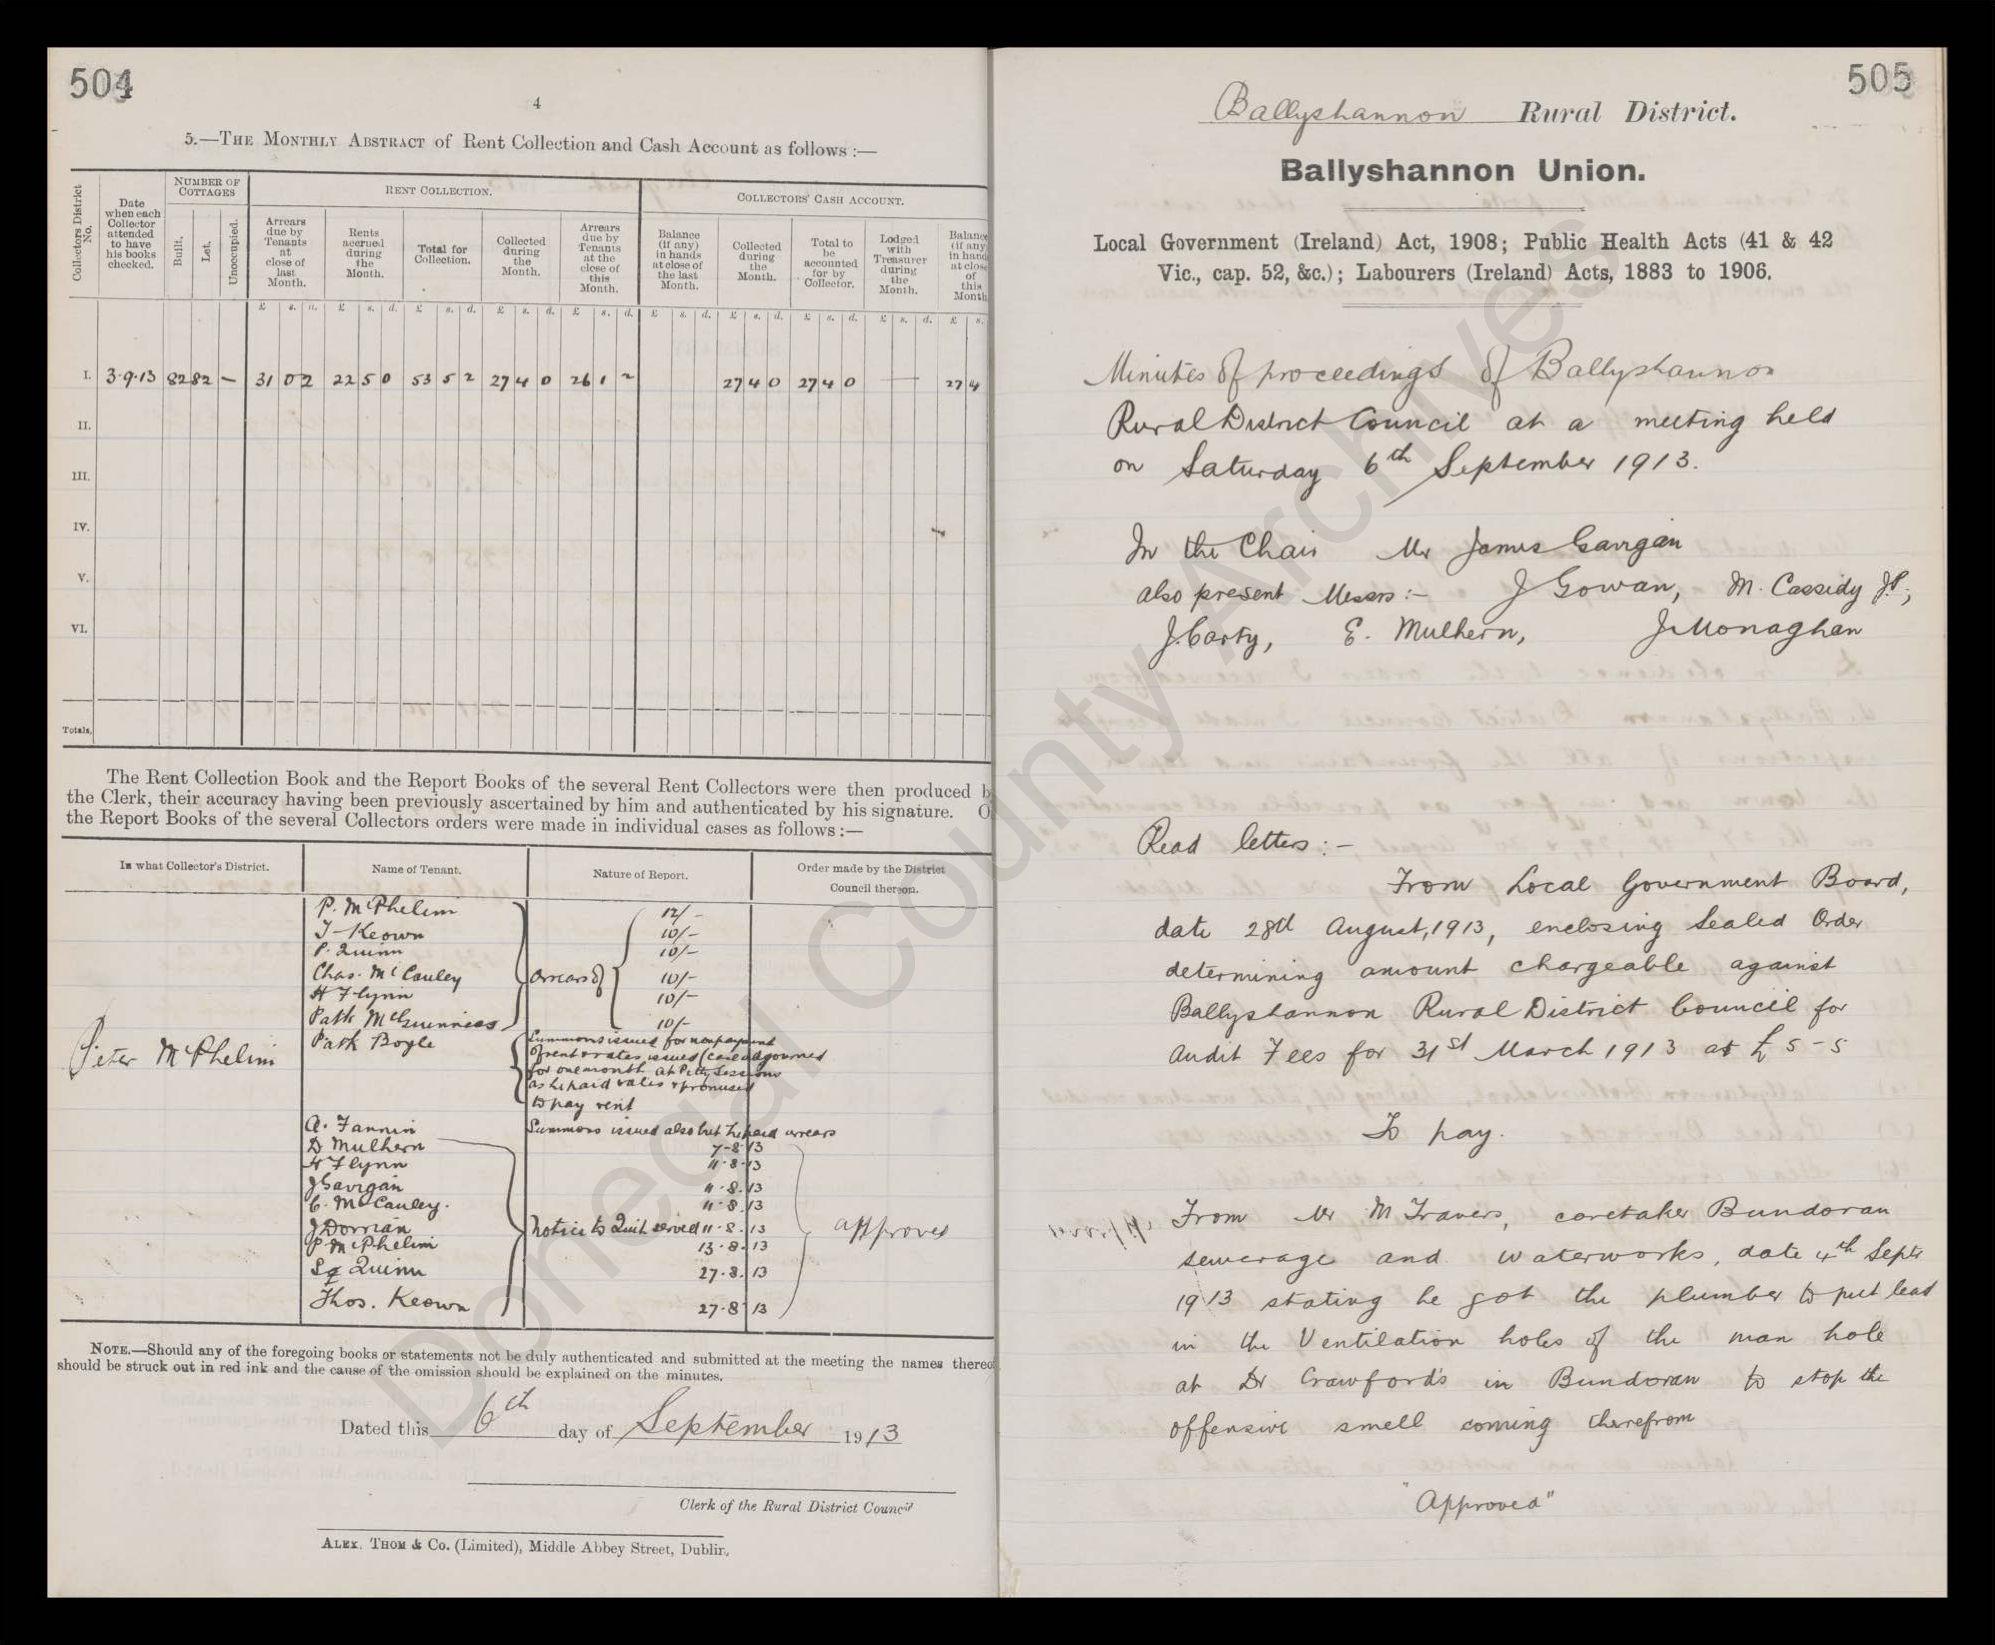 504
4
5.—THE MONTHLY ABSTRACT of Rent Collection and Cash Account as follows :—
Collectors District No.
Date when each Collector attended to have his books checked.
NUMBER OF COTTAGES
Built.
Let.
Unoccupied.
RENT COLLECTION.
Arrears due by Tenants at close of last Month.
Rents accrued during the Month.
Total for Collection.
Collected during the Month.
Arrears due by Tenants at the close of this Month.
COLLECTORS' CASH ACCOUNT.
Balance (if any) in hands at close of the last Month.
Collected during the Month.
Total to be accounted for by Collector.
Lodged with Treasurer during the Month.
Balance (if any in hand at close of this Month
£ s. d. £ s. d. £ s. d. £ s. d. £ s. d. £ s. d. £ s. d. £ s. d. £ s. d. £ s.
I. 3.9.13 82 82 — 31 0 2 22 5 0 53 5 2 27 4 0 26 1 2 27 4 0 27 4 0 — 27 4
II.
III.
IV.
V.
VI.
Totals.
The Rent Collection Book and the Report Books of the several Rent Collectors were then produced b
the Clerk, their accuracy having been previously ascertained by him and authenticated by his signature. O
the Report Books of the several Collectors orders were made in individual cases as follows :—
In what Collector's District. Name of Tenant. Nature of Report. Order made by the District Council thereon.
Peter McPhelim
P. McPhelim 12/-
T Keown 10/-
P. Quinn 10/-
Chas. McCauley arrears of 10/-
H Flynn 10/-
Patk McGuinness 10/-
Patk Bogle Summons issued for nonpayment
of rent & rates issued (case adjourned
for one month at Petty Sessions
as he paid rates & promised
to pay rent
A. Fannin Summons issued also but he paid arrears
D Mulhern 7-8-13
H Flynn 11.8.13
J Gavigan 11.8.13
C. McCauley. 11.8.13
J Dorrian Notice to Quit served 11.8.13
P McPhelim 13.8.13
Quinn 27.8.13
Thos. Keown 27.8.13
approved
NOTE.—Should any of the foregoing books or statements not be duly authenticated and submitted at the meeting the names thereo
should be struck out in red ink and the cause of the omission should be explained on the minutes.
Dated this 6th day of September 1913
Clerk of the Rural District Council
ALEX. THOM & Co. (Limited), Middle Abbey Street, Dublin.
505
Ballyshannon Rural District.
Ballyshannon Union.
Local Government (Ireland) Act, 1908; Public Health Acts (41 & 42
Vic., cap. 52, &c.); Labourers (Ireland) Acts, 1883 to 1906.
Minutes of proceedings of Ballyshannon
Rural District Council at a meeting held
on Saturday 6th September 1913.
In the Chair Mr James Gavigan
also present Messrs :- J Gowan, M. Cassidy J.P.,
J. Carty, E. Mulhern, J Monaghan
Read letters :-
From Local Government Board,
date 28th August, 1913, enclosing Sealed Order
determining amount chargeable against
Ballyshannon Rural District Council for
Audit Fees for 31st March 1913 at £5-5
To pay.
From Mr M Travers, caretaker Bundoran
sewerage and waterworks, date 4th Septr
1913 stating he got the plumber to put lead
in the Ventilation holes of the man hole
at Dr Crawford's in Bundoran to stop the
offensive smell coming therefrom
"Approved"
Donegal County Archives